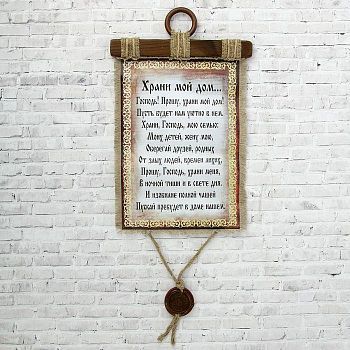 Храни мой дом...
Господь! Прошу, храни мой дом!
Пусть будет нам уютно в нем.
Храни, Господь, мою семью:
Моих детей, жену мою,
Оберегай друзей, родных
От злых людей, времен лихих,
Прошу, Господь, храни меня,
В ночной тиши и в свете дня.
И изобилие полной чашей
Пускай пребудет в доме нашем.